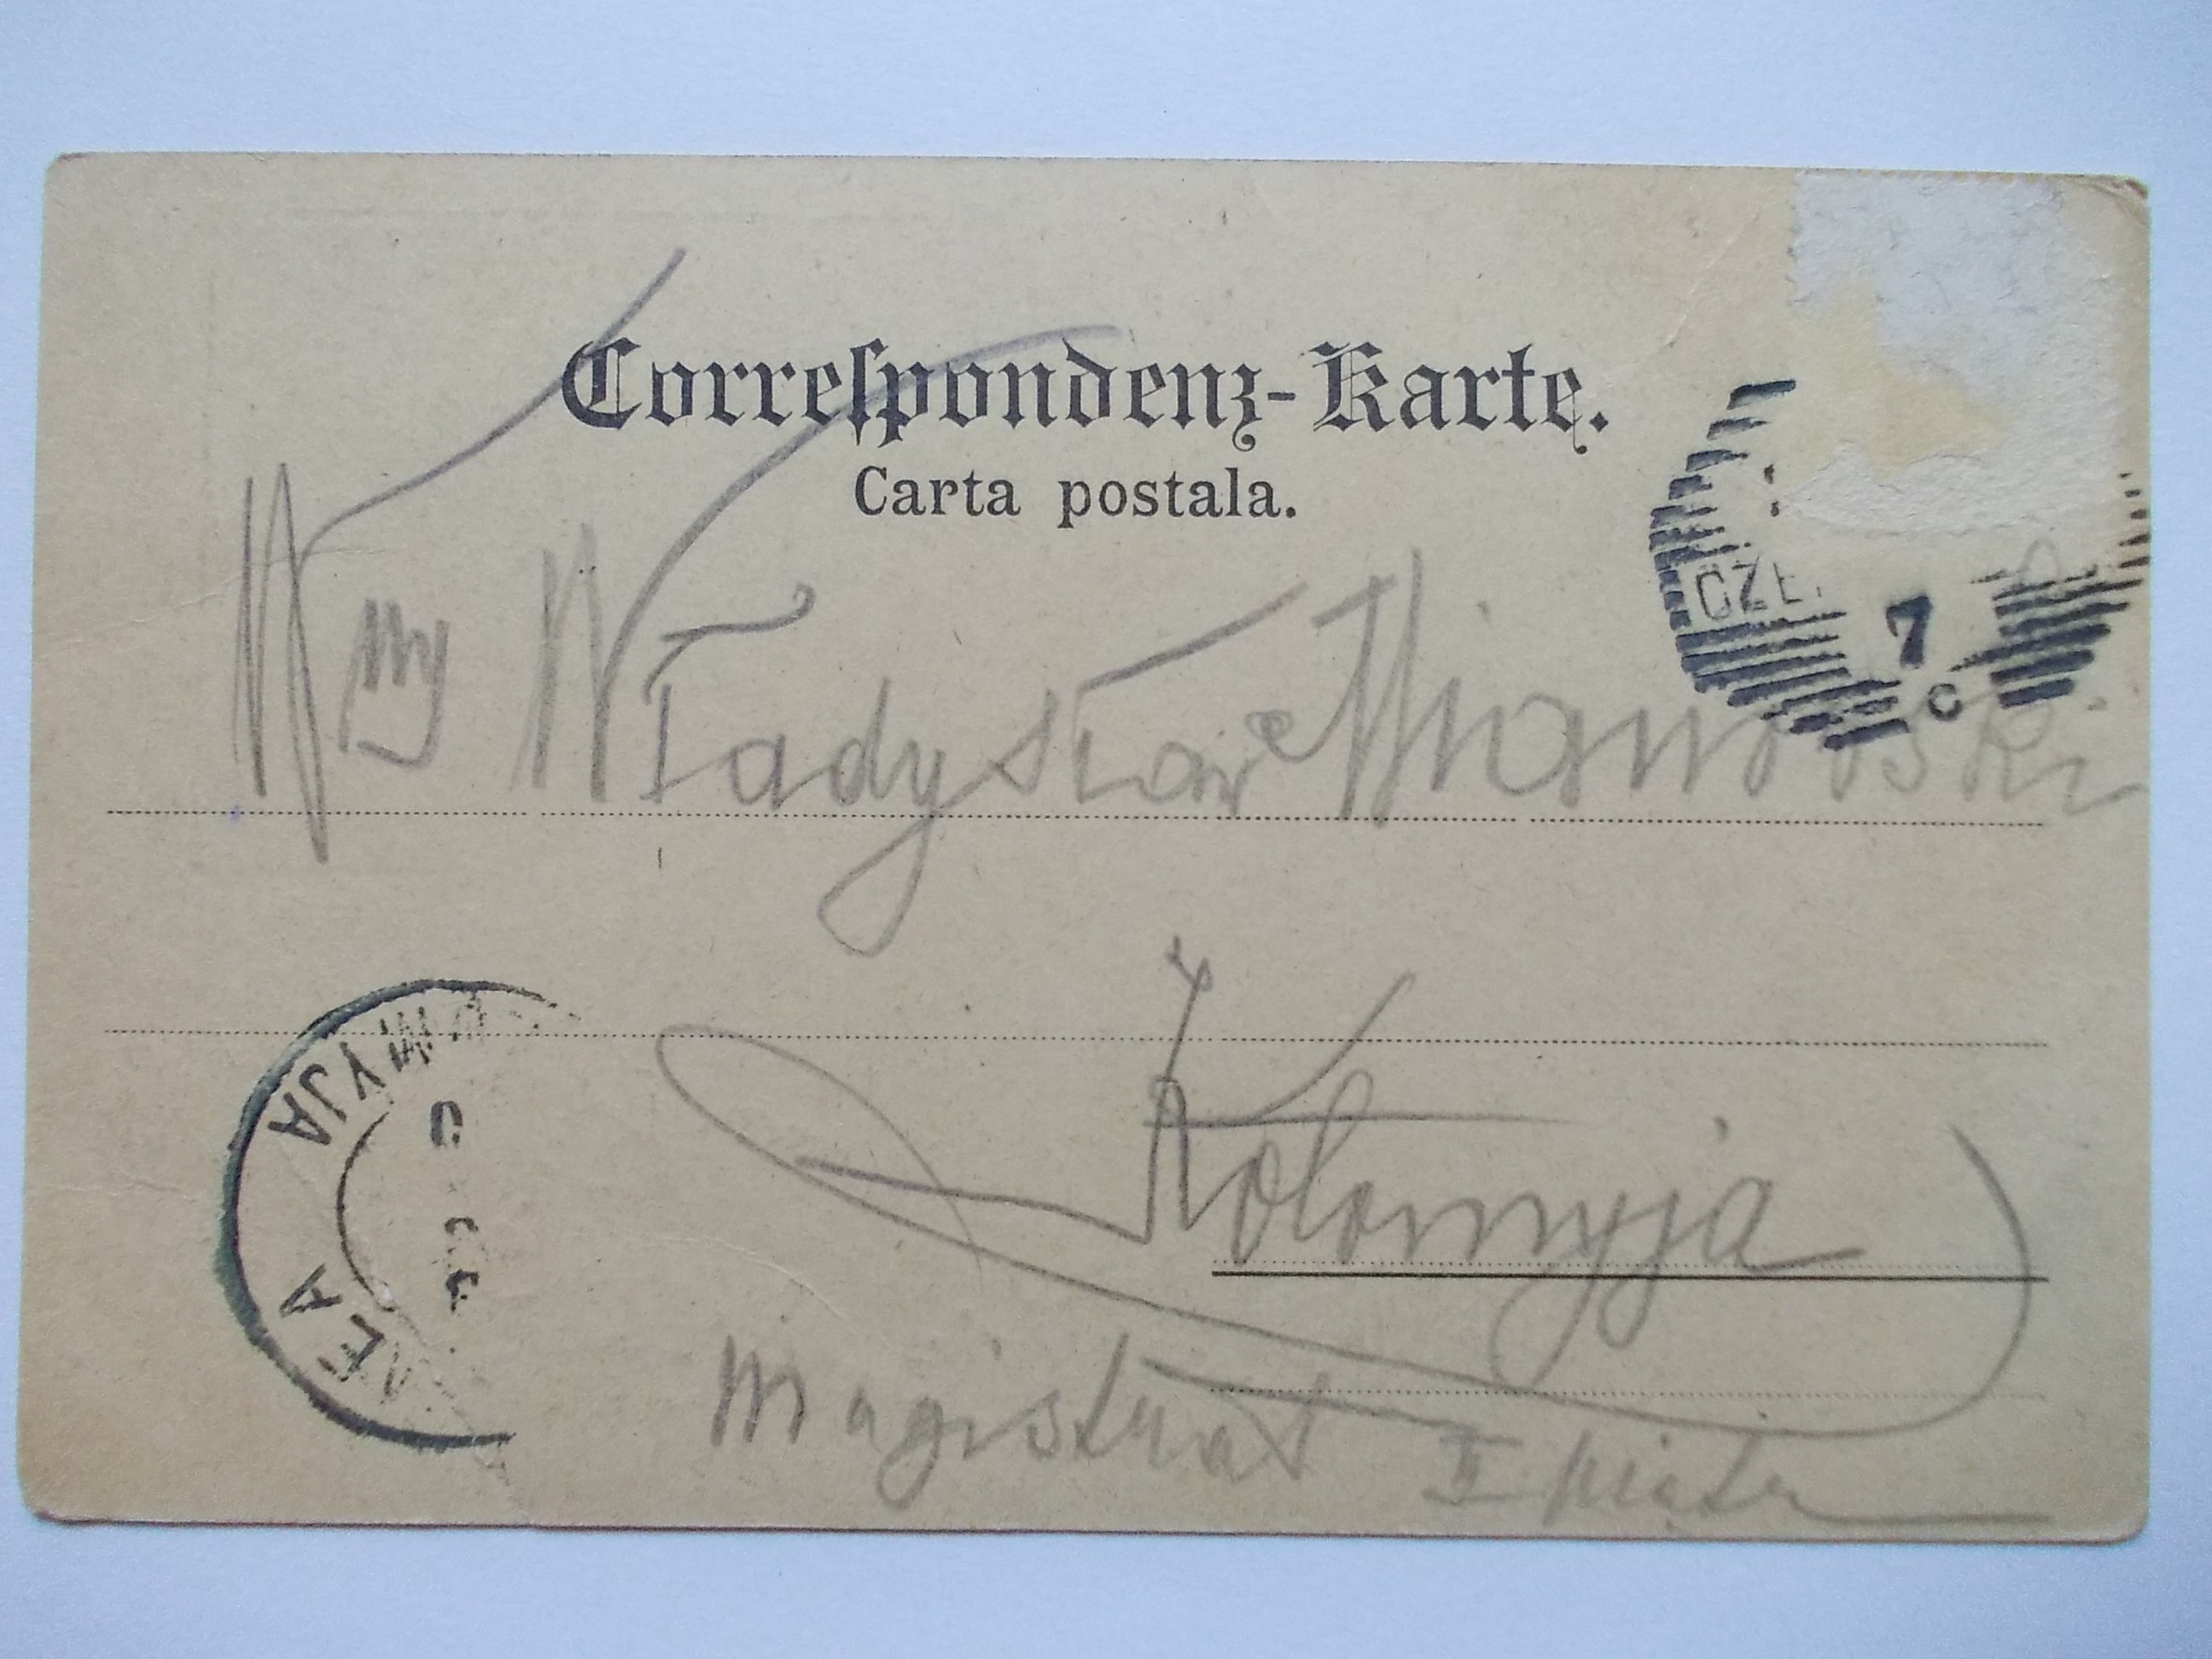 Correſpondenz-Karte.
Carta postala.
CZE
7
c
Wny Władysław
Kołomyja
MYJA
EA
Magistrat II piętr